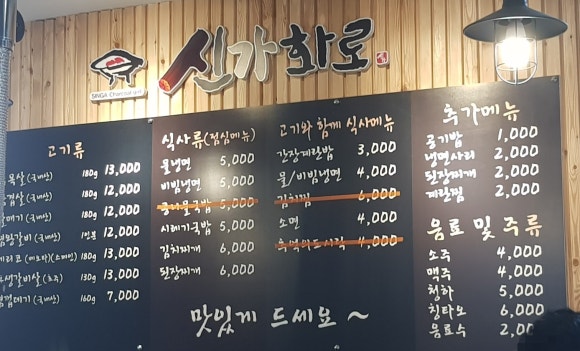 신가화로
SINGA Charcoal grill
고기류
목살(국내산) 180g 13,000
겹살(국내산) 180g 12,000
메기(국내산) 180g 12,000
갈비(국내산) 1인분 12,000
리코(베요타)(스페인) 180g 13,000
생갈비살(호주) 130g 13,000
껍데기(국내산) 160g 7,000
식사류(점심메뉴)
물냉면 5,000
비빔냉면 5,000
콩나물국밥 5,000
시레기국밥 5,000
김치찌개 6,000
된장찌개 6,000
고기와 함께 식사메뉴
간장계란밥 3,000
물/비빔냉면 4,000
김치찜 6,000
소면 4,000
추억의도시락 4,000
추가메뉴
공기밥 1,000
냉면사리 2,000
된장찌개 2,000
계란찜 2,000
음료 및 주류
소주 4,000
맥주 4,000
청하 5,000
칭타오 6,000
음료수 2,000
맛있게 드세요 ~